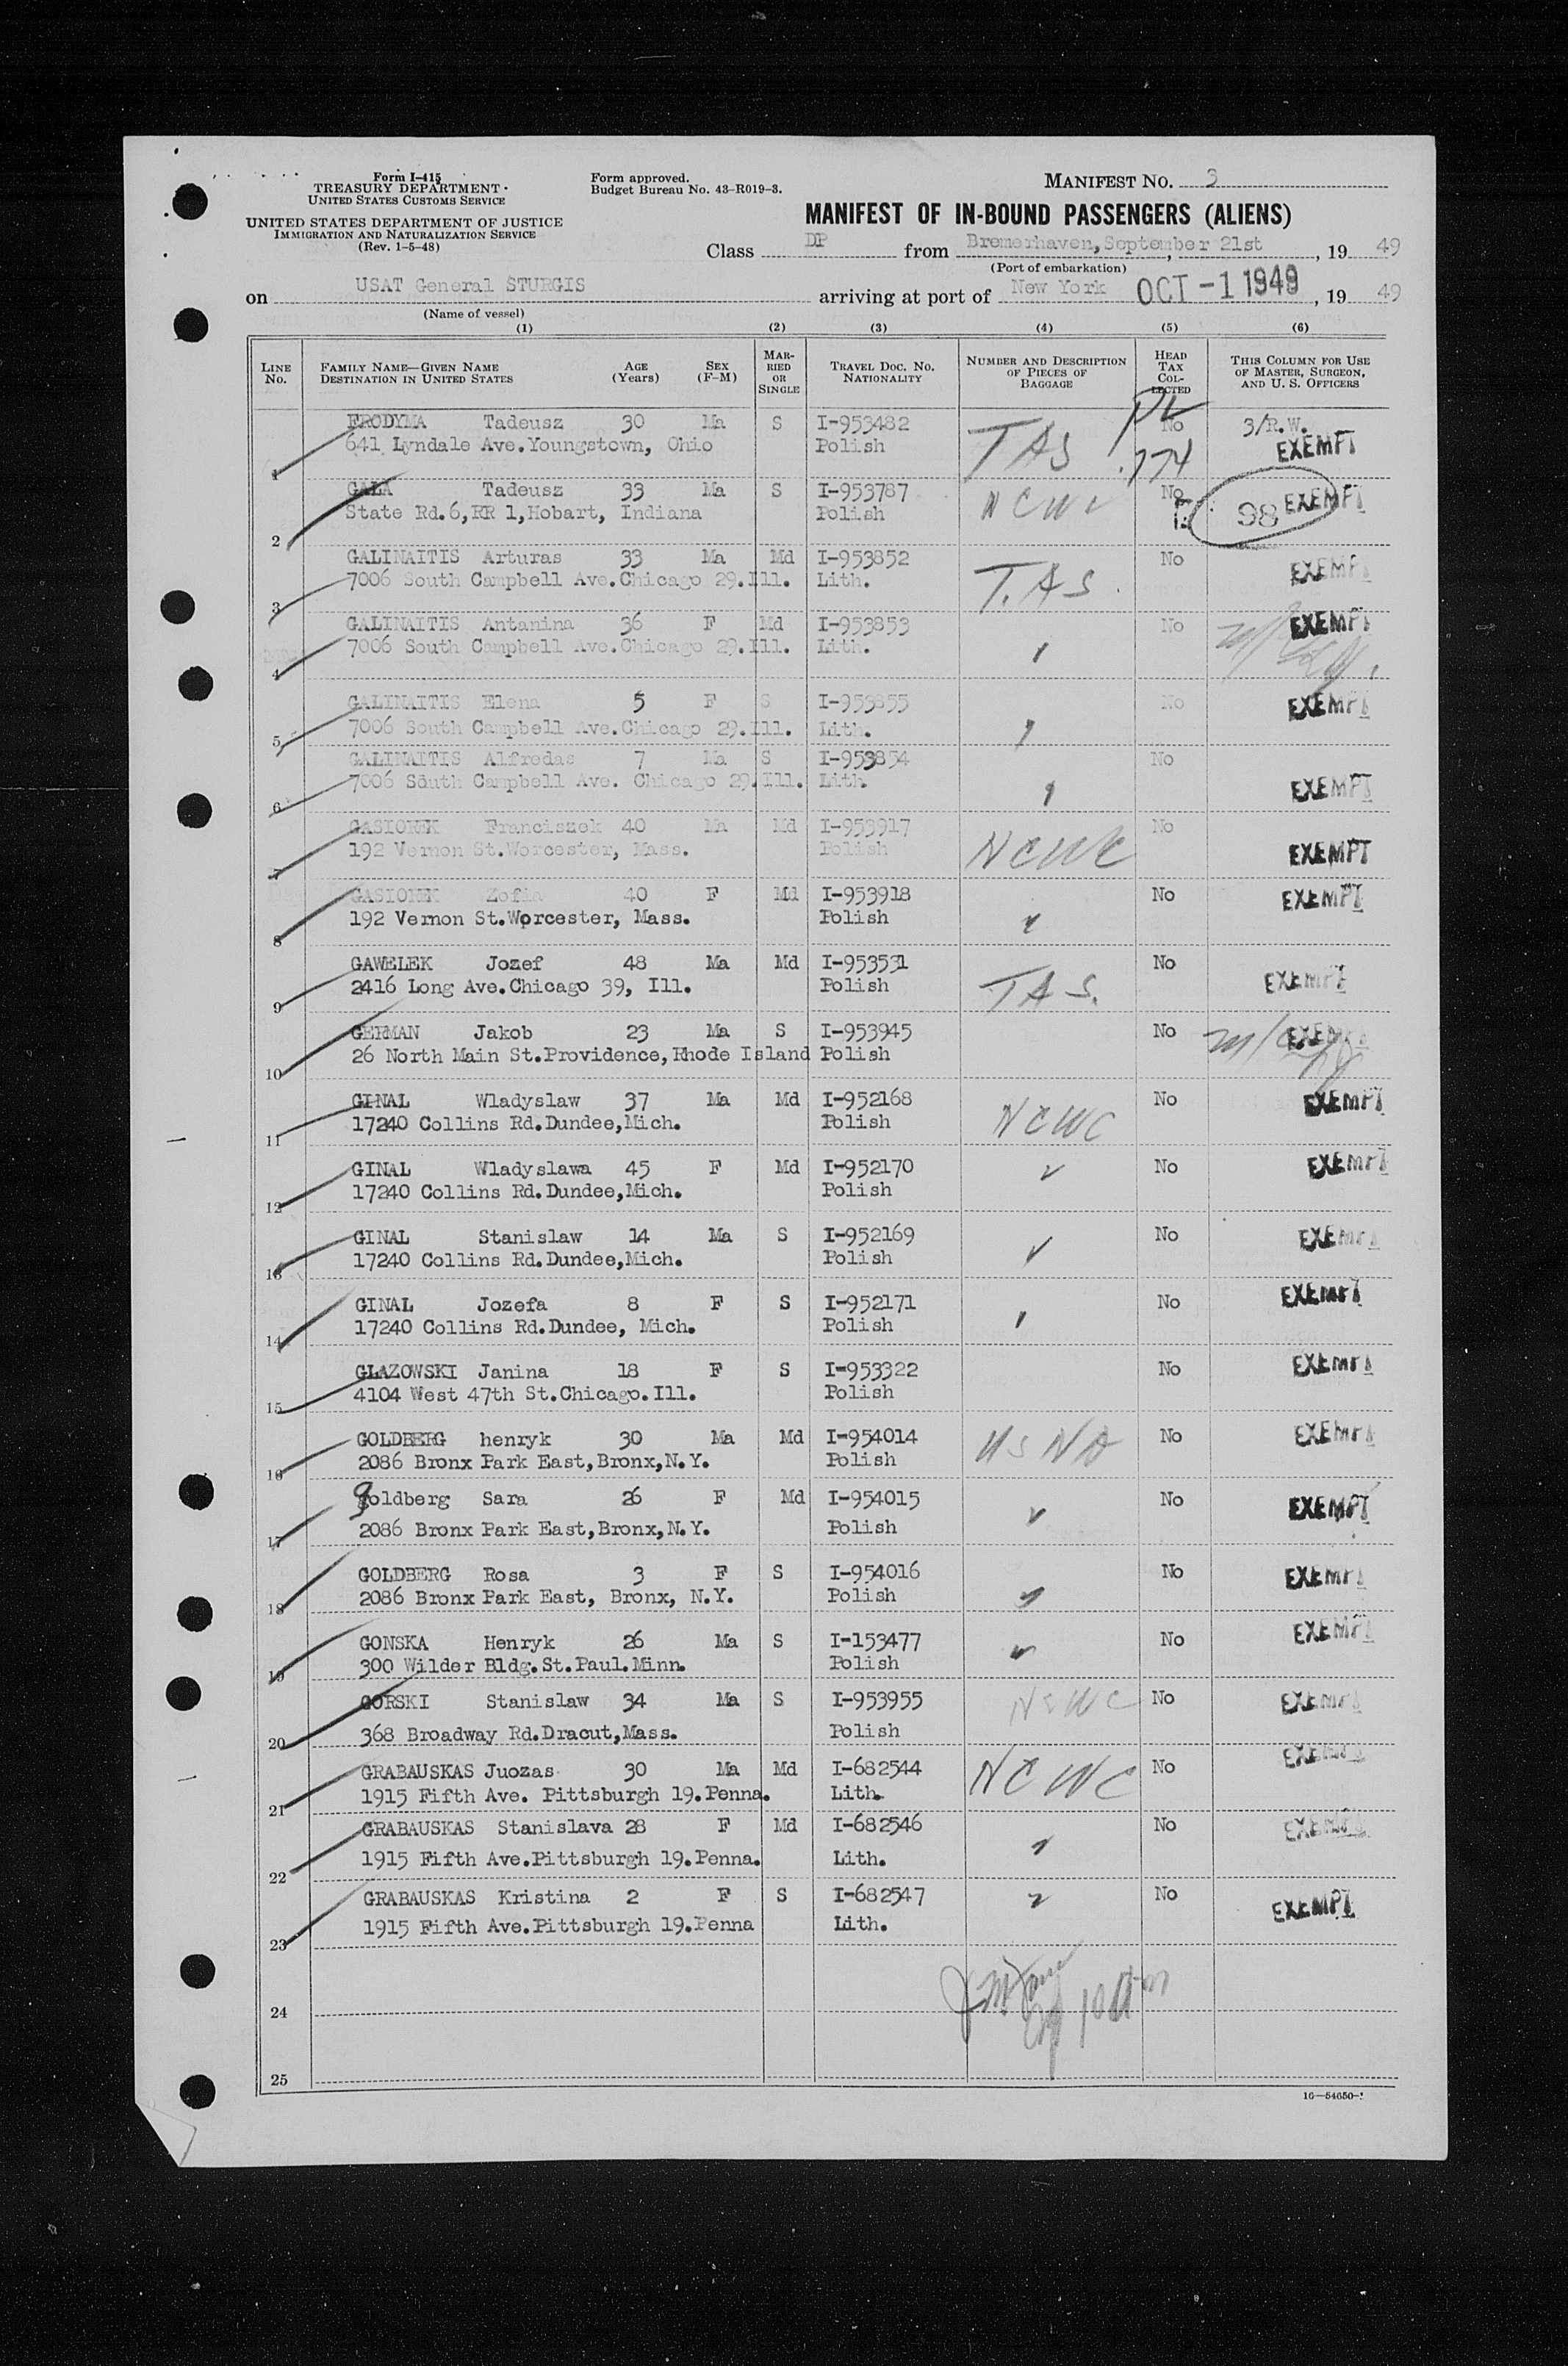 Form I-415
TREASURY DEPARTMENT
UNITED STATES CUSTOMS SERVICE
UNITED STATES DEPARTMENT OF JUSTICE
IMMIGRATION AND NATURALIZATION SERVICE
(Rev. 1-5-48)
Form approved.
Budget Bureau No. 43-R019-3.
MANIFEST NO. 3
MANIFEST OF IN-BOUND PASSENGERS (ALIENS)
Class DP from Bremerhaven, September 21st, 19 49
(Port of embarkation)
on USAT General STURGIS arriving at port of New York OCT -1 1949, 19 49
(Name of vessel)
(1) (2) (3) (4) (5) (6)
LINE No. FAMILY NAME—GIVEN NAME DESTINATION IN UNITED STATES AGE (Years) SEX (F-M) MARRIED OR SINGLE TRAVEL DOC. NO. NATIONALITY NUMBER AND DESCRIPTION OF PIECES OF BAGGAGE HEAD TAX COLLECTED THIS COLUMN FOR USE OF MASTER, SURGEON, AND U. S. OFFICERS
PL
FRODYMA Tadeusz 30 Ma S I-953482 TAS No 3/R.W.
1 641 Lyndale Ave.Youngstown, Ohio Polish 774 EXEMPT
GALA Tadeusz 33 Ma S I-953787 NCWC No 98 EXEMPT
2 State Rd.6,RR 1,Hobart, Indiana Polish
GALINAITIS Arturas 33 Ma Md I-953852 T.AS No EXEMPT
3 7006 South Campbell Ave.Chicago 29.Ill. Lith.
GALINAITIS Antanina 36 F Md I-953853 No EXEMPT
4 7006 South Campbell Ave.Chicago 29.Ill. Lith.
GALINAITIS Elena 5 F S I-953855 No EXEMPT
5 7006 South Campbell Ave.Chicago 29.Ill. Lith.
GALINAITIS Alfredas 7 Ma S I-953854 No
6 7006 South Campbell Ave. Chicago 29.Ill. Lith. EXEMPT
GASIOREK Franciszek 40 Ma Md I-953917 NCWC No
7 192 Vernon St.Worcester, Mass. Polish EXEMPT
GASIOREK Zofia 40 F Md I-953918 No EXEMPT
8 192 Vernon St.Worcester, Mass. Polish
GAWELEK Jozef 48 Ma Md I-953531 TAS. No EXEMPT
9 2416 Long Ave.Chicago 39, Ill. Polish
GERMAN Jakob 23 Ma S I-953945 No EXEMPT
10 26 North Main St.Providence,Rhode Island Polish
GINAL Wladyslaw 37 Ma Md I-952168 NCWC No EXEMPT
11 17240 Collins Rd.Dundee,Mich. Polish
GINAL Wladyslawa 45 F Md I-952170 No EXEMPT
12 17240 Collins Rd.Dundee,Mich. Polish
GINAL Stanislaw 14 Ma S I-952169 No EXEMPT
13 17240 Collins Rd.Dundee,Mich. Polish
GINAL Jozefa 8 F S I-952171 No EXEMPT
14 17240 Collins Rd.Dundee, Mich. Polish
GLAZOWSKI Janina 18 F S I-953322 No EXEMPT
15 4104 West 47th St.Chicago.Ill. Polish
GOLDBERG henryk 30 Ma Md I-954014 USNA No EXEMPT
16 2086 Bronx Park East,Bronx,N.Y. Polish
goldberg Sara 26 F Md I-954015 No EXEMPT
17 2086 Bronx Park East,Bronx,N.Y. Polish
GOLDBERG Rosa 3 F S I-954016 No EXEMPT
18 2086 Bronx Park East, Bronx, N.Y. Polish
GONSKA Henryk 26 Ma S I-153477 No EXEMPT
19 300 Wilder Bldg.St.Paul.Minn. Polish
GORSKI Stanislaw 34 Ma S I-953955 NCWC No EXEMPT
20 368 Broadway Rd.Dracut,Mass. Polish
GRABAUSKAS Juozas 30 Ma Md I-682544 NCWC No EXEMPT
21 1915 Fifth Ave. Pittsburgh 19.Penna. Lith.
GRABAUSKAS Stanislava 28 F Md I-682546 No EXEMPT
22 1915 Fifth Ave.Pittsburgh 19.Penna. Lith.
GRABAUSKAS Kristina 2 F S I-682547 No EXEMPT
23 1915 Fifth Ave.Pittsburgh 19.Penna Lith.
24
25